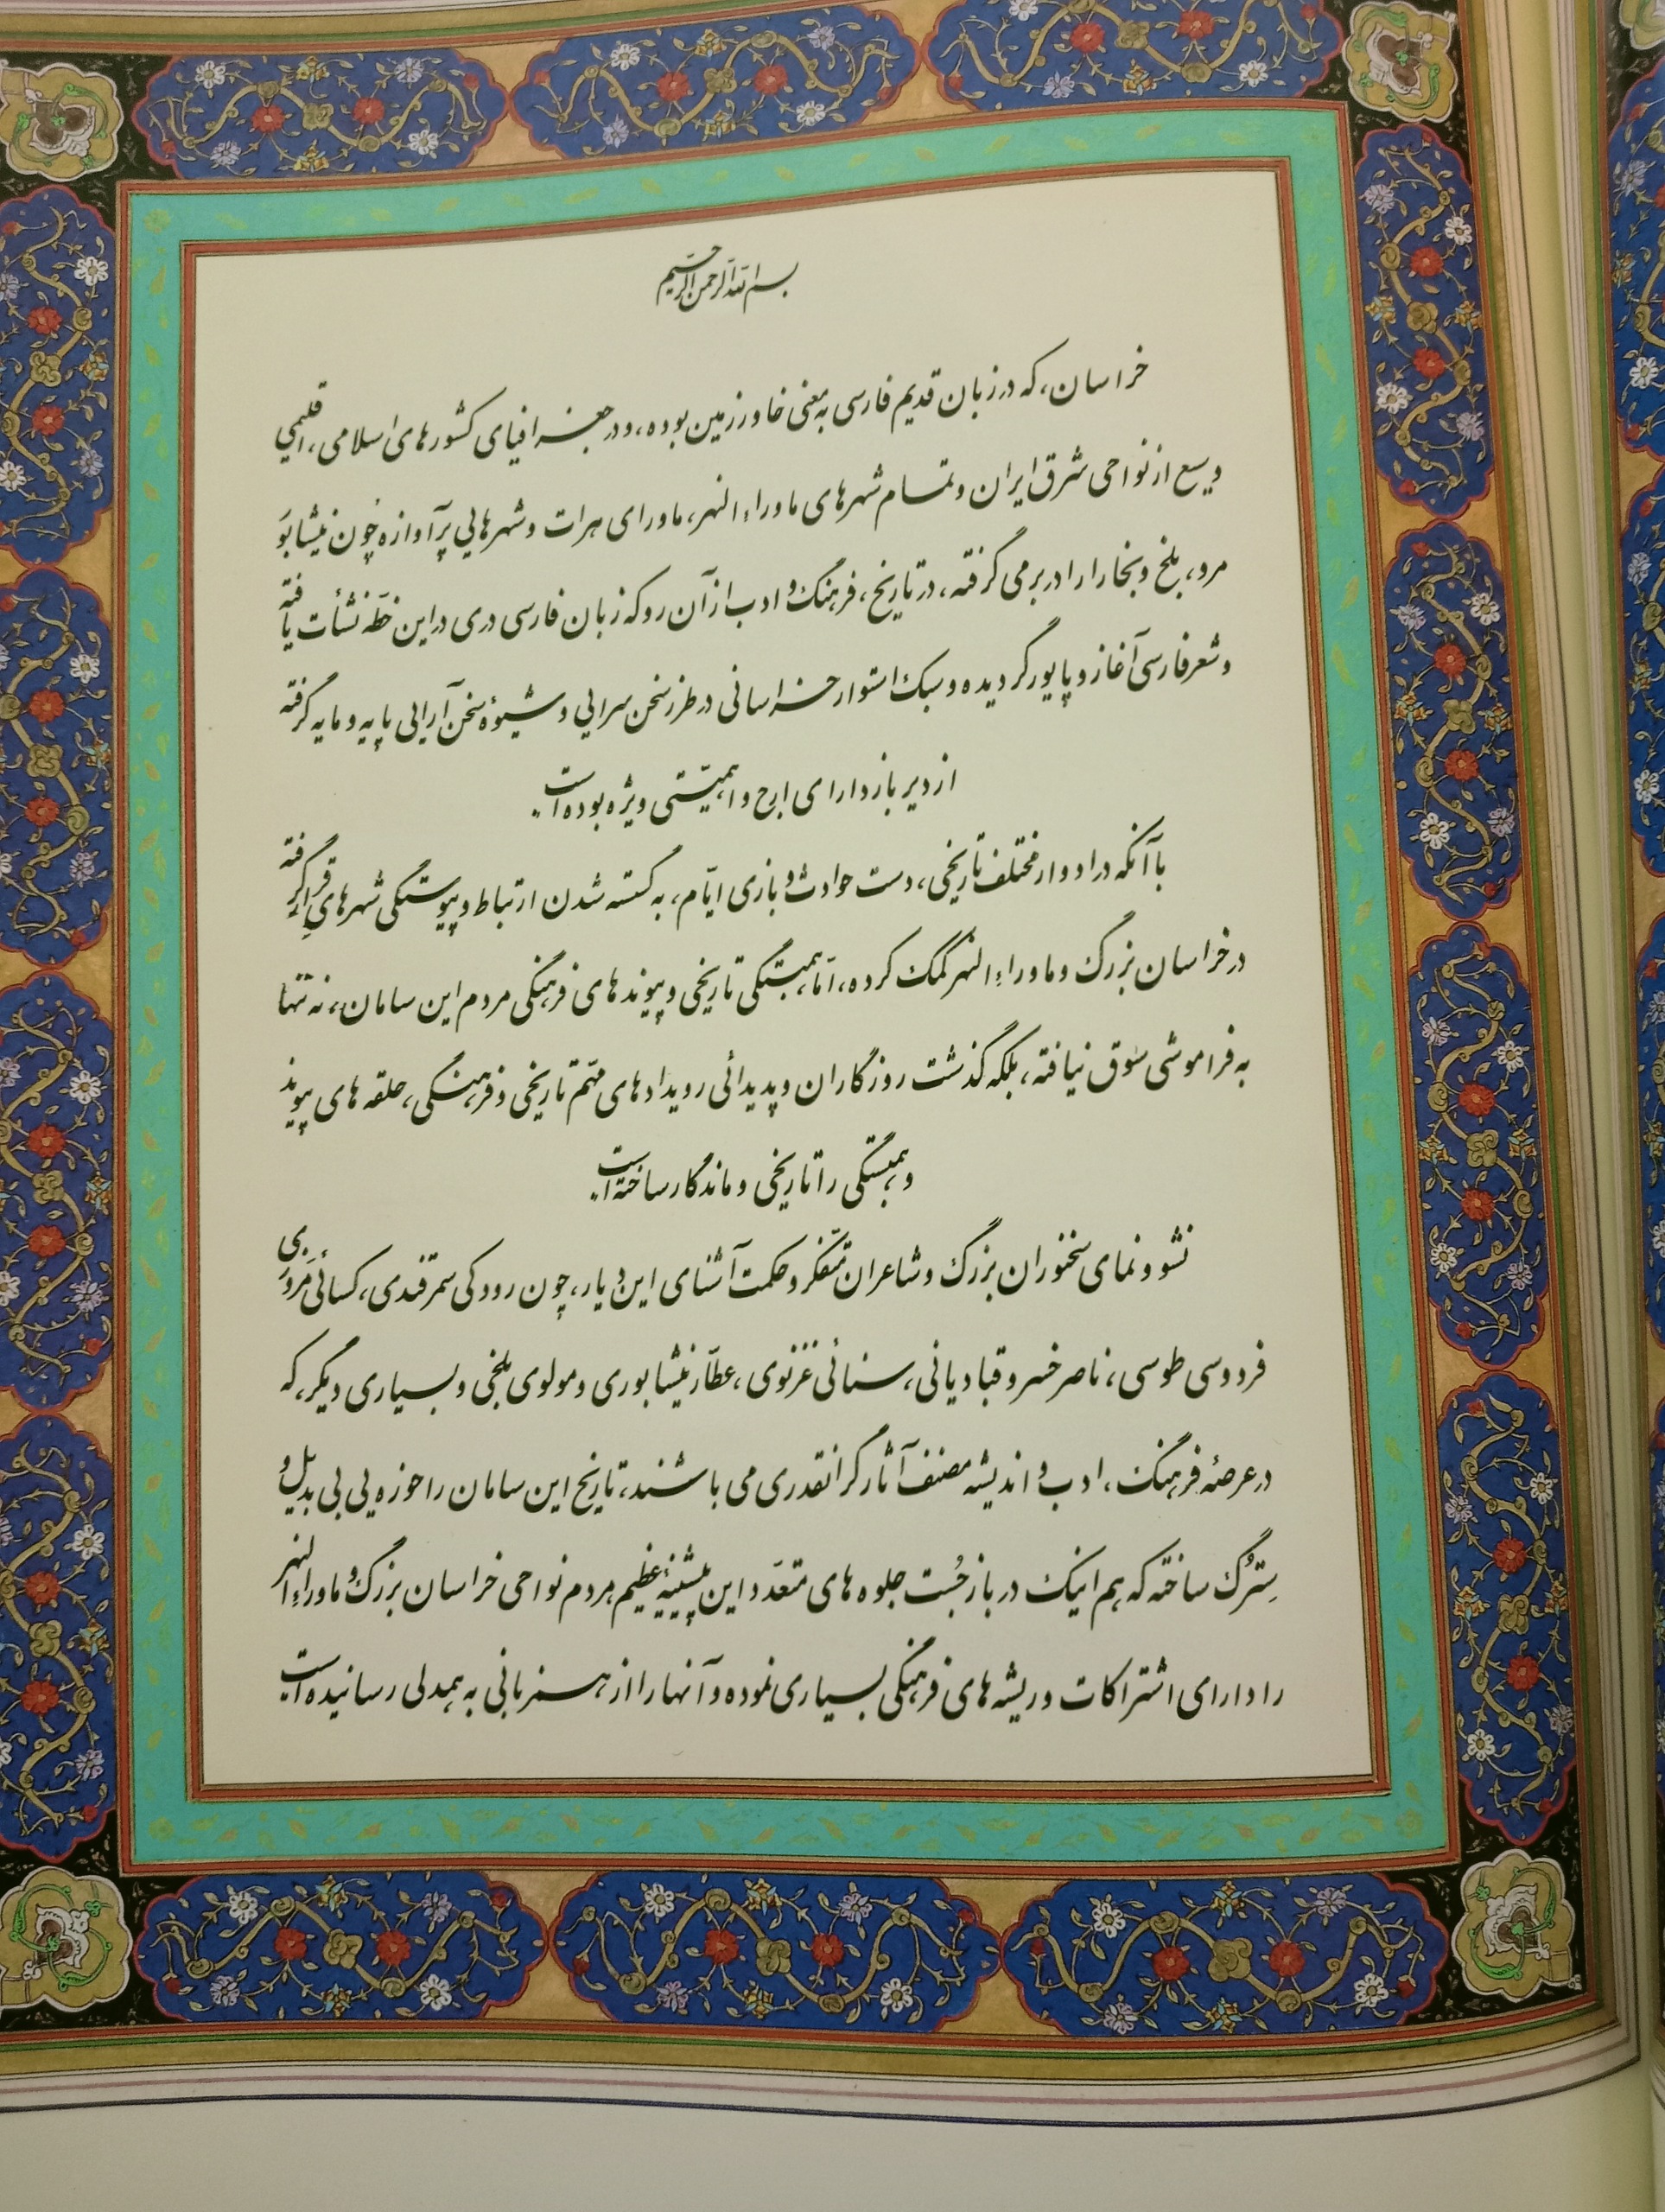 بسم الله الرحمن الرحیم
خراسان، که در زبان قدیم فارسی به معنی خاور زمین بوده، و در جغرافیای کشورهای اسلامی، اقلیمی
وسیع از نواحی شرق ایران و تمام شهرهای ماوراء النهر، ماورای هرات و شهرهایی پرآوازه چون نیشابور
مرو، بلخ و بخارا را در بر می گرفته، در تاریخ، فرهنگ و ادب از آن رو که زبان فارسی دری در این خطّه نشأت یافته
و شعر فارسی آغاز و پایور گردیده و سبک استوار خراسانی در طرز سخن سرایی و شیوهٔ سخن آرایی پایه و مایه گرفته
از دیرباز دارای ارج و اهمیّتی ویژه بوده است.
با آنکه در ادوار مختلف تاریخی، دست حوادث و بازی ایّام، به گسسته شدن ارتباط و پیوستگی شهرهای قرار گرفته
در خراسان بزرگ و ماوراء النهر کمک کرده، امّا همبستگی تاریخی و پیوندهای فرهنگی مردم این سامان، نه تنها
به فراموشی سوق نیافته، بلکه گذشت روزگاران و پدیدائی رویدادهای مهّم تاریخی و فرهنگی، حلقه های پیوند
و همبستگی را تاریخی و ماندگار ساخته است.
نشو و نمای سخنوران بزرگ و شاعران متفکّر و حکمت آشنای این دیار، چون رودکی سمرقندی، کسائی مَروَزی
فردوسی طوسی، ناصر خسرو قبادیانی، سنائی غزنوی، عطّار نیشابوری و مولوی بلخی و بسیاری دیگر، که
در عرصهٔ فرهنگ، ادب و اندیشه مصنف آثار گرانقدری می باشند، تاریخ این سامان را حوزه یی بی بدیل و
سِتُرگ ساخته که هم اینک در بازجُست جلوه های متعدّد این پیشینهٔ عظیم مردم نواحی خراسان بزرگ و ماوراء النهر
را دارای اشتراکات و ریشه های فرهنگی بسیاری نموده و آنها را از همزبانی به همدلی رسانیده است